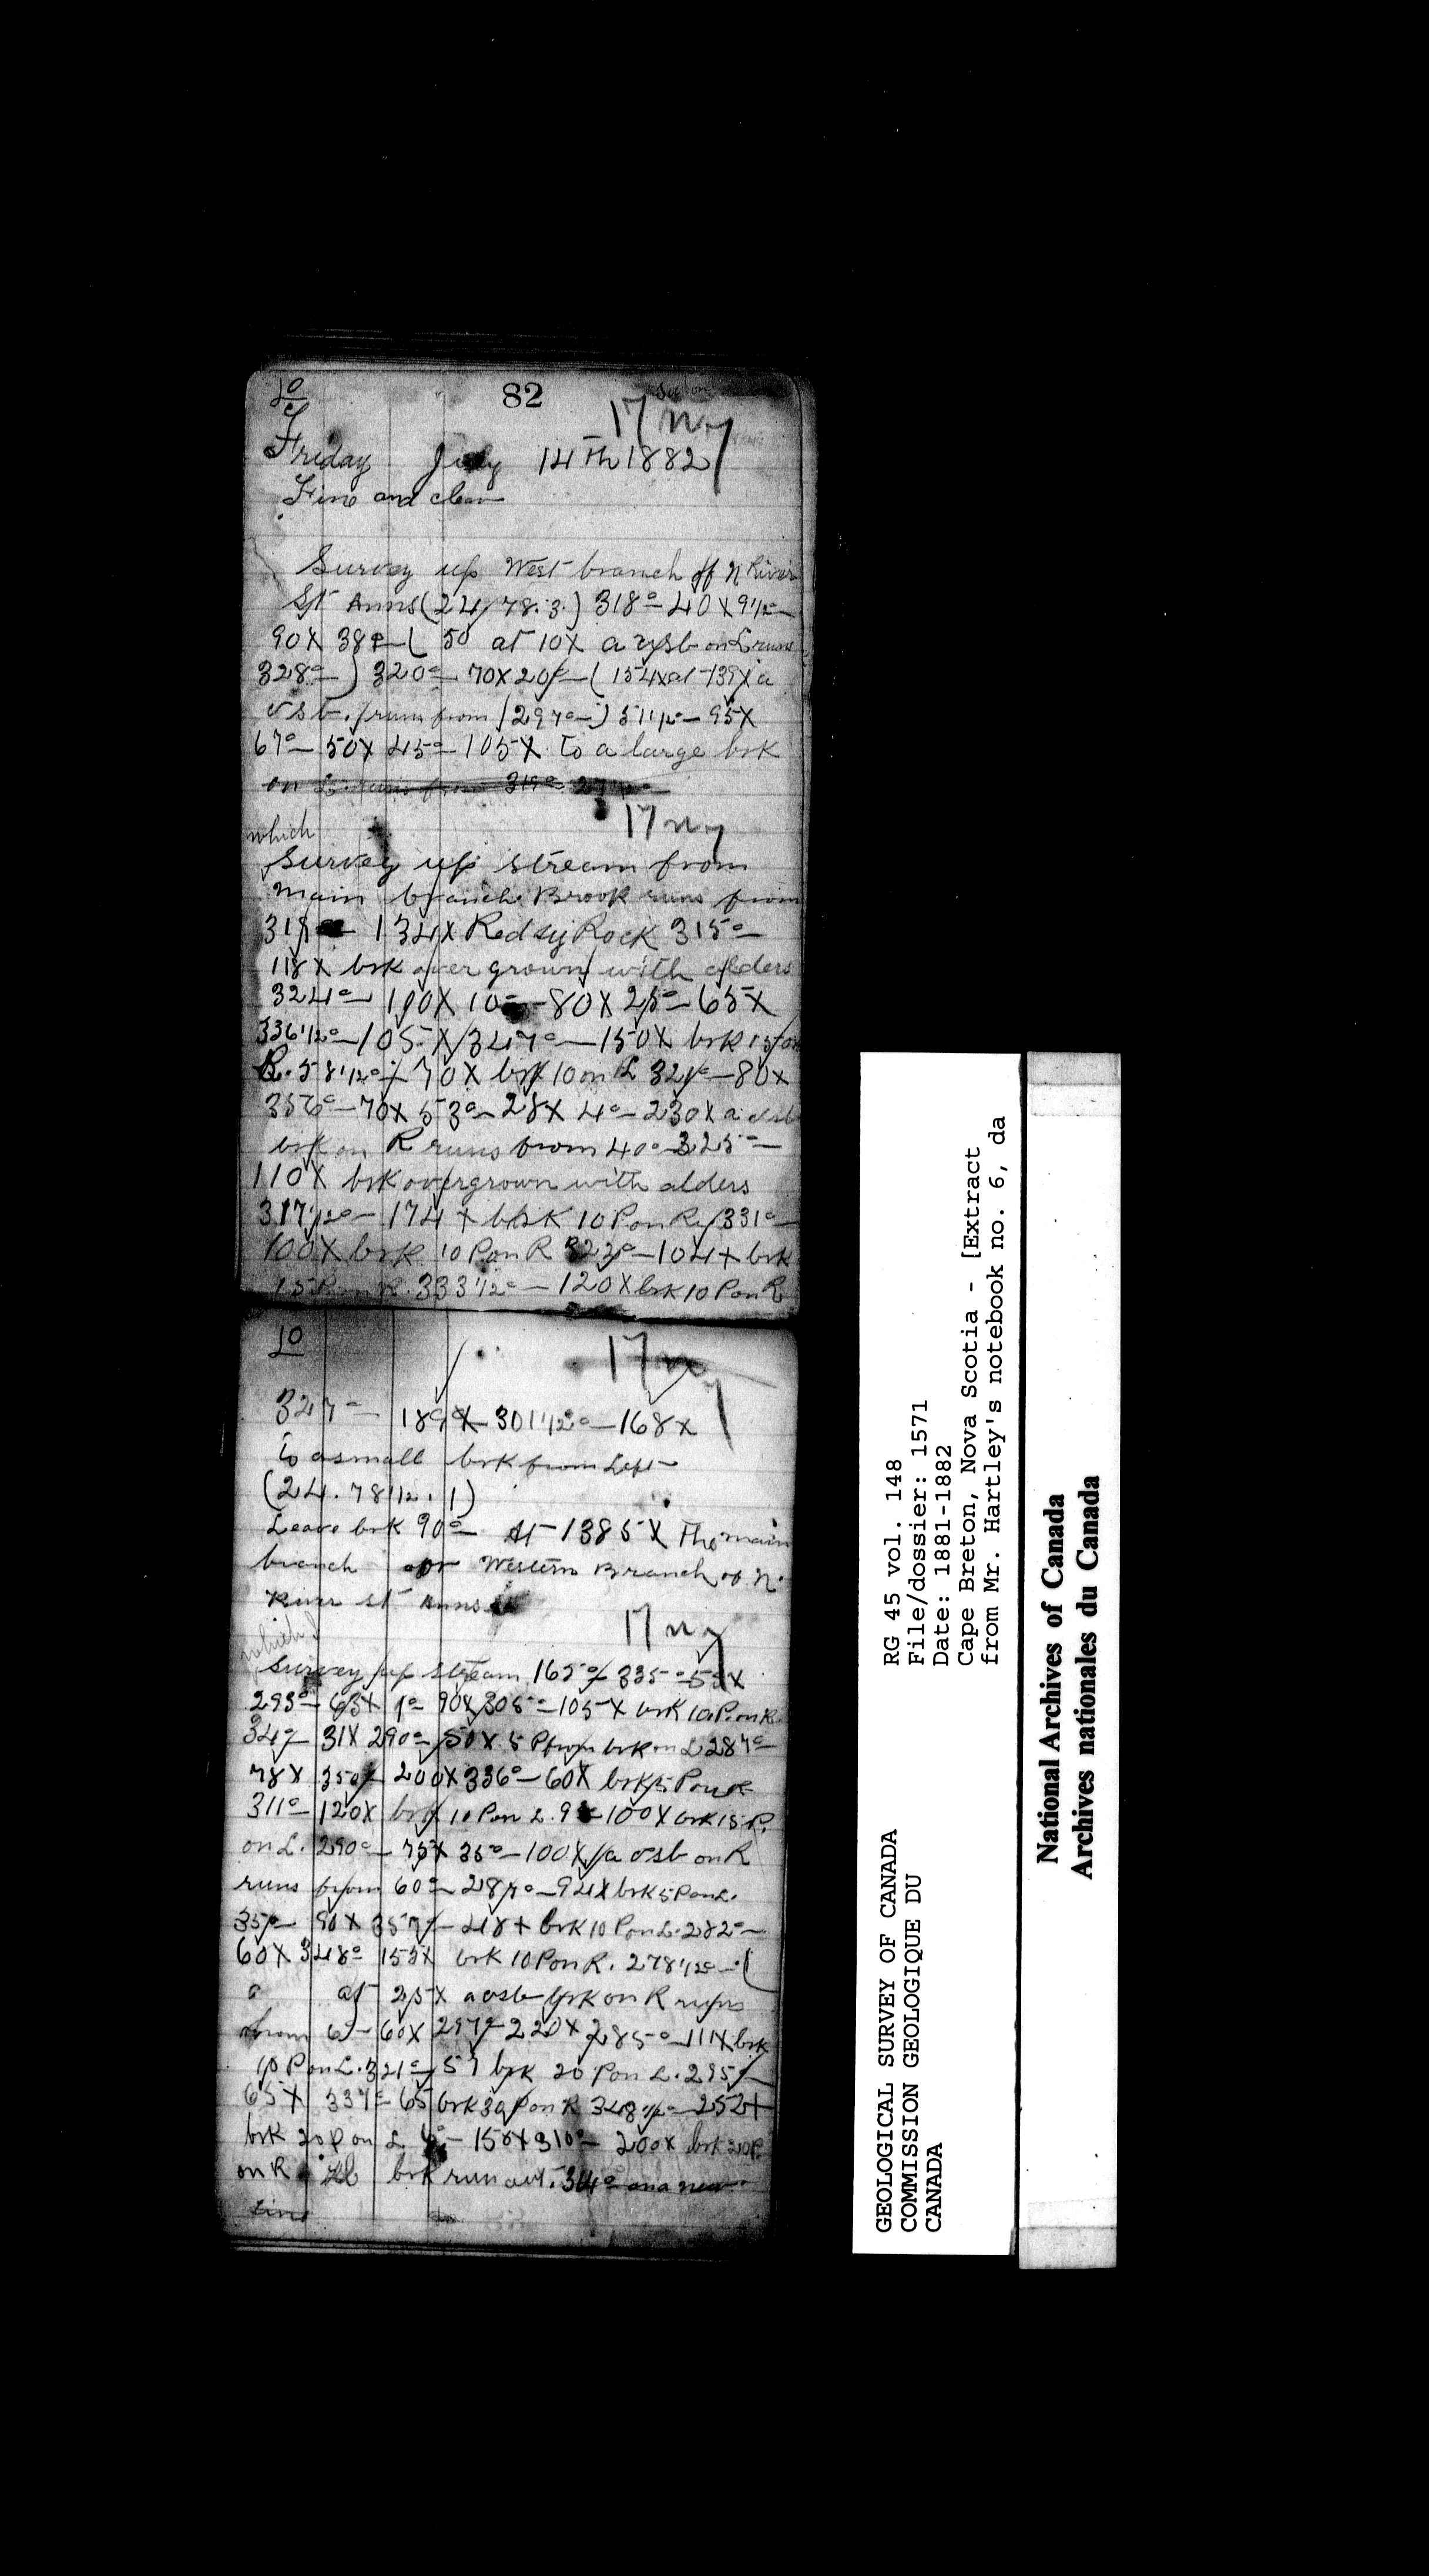 10
82
17 Ny
Friday July 14Th 1882
Fine and clear
Survey up West branch off N River
St Anns (24/78.3.) 318°— 40 X 9½°—
90 X 38°— ( 50 at 10X a vsb on L runs
328°—) 320°— 70 X 20°— ( 154X at 139X a
vsb. runs from (297°—) 311½°— 95X
67°— 50X 45°— 105X to a large brk
on L runs from 319°
which
17 Ny
Survey up stream from
Main branch Brook runs from
134X Red sy Rock 315°—
118X brk over grown with alders
324°— 190X 10°— 80X 25°— 65X
336½°— 105X 347°— 150X brk 15 on
R. 58½°— 70X brk 10 on L 321°— 80X
356°— 70X 53°— 28X 4°— 230X a vsb
brk on R runs from 40° 325°—
110X brk overgrown with alders
317½°— 174X brk 10 P on R 331°—
100X brk 10 P on R 322°— 104X brk
15 P on R. 333½°— 120X brk 10 P on R
10
17 Ny
347°— 189X 301½°— 168X
to a small brk from Left
(24.78½.1)
Leave brk 90°— At 1385X The main
branch or Western Branch of N.
River St Anns
17 Ny
which
Survey up stream 165° 335°— 55X
293°— 63X 1°— 90X 305°— 105X brk 10 P. on R.
347— 31X 290°— 50X 5 P from brk on L 287°—
78X 350°— 200X 336°— 60X brk 5 P on R
311°— 120X brk 10 P on L. 100X brk 15 P.
on L. 290°— 75X 35°— 100X a vsb on R
runs from 60°— 287°— 94X brk 5 P on L.
35°— 90X 357°— 48X brk 10 P on L. 282°—
60X 348° 155X brk 10 P on R. 278½°— (
at 25X a vsb brk on R runs
from 6°— 60X 297°— 220X 285°— 111X brk
10 P on L. 321°— 57 brk 20 P on L. 295°—
65X 337°— 65 brk 30 P on R 348½°— 252X
brk 20 P on L 150X 310°— 200X brk 20 P.
on R brk run out. 314° on a new
line
GEOLOGICAL SURVEY OF CANADA
COMMISSION GEOLOGIQUE DU
CANADA
RG 45 vol. 148
File/dossier: 1571
Date: 1881-1882
Cape Breton, Nova Scotia - [Extract
from Mr. Hartley's notebook no. 6, da
National Archives of Canada
Archives nationales du Canada